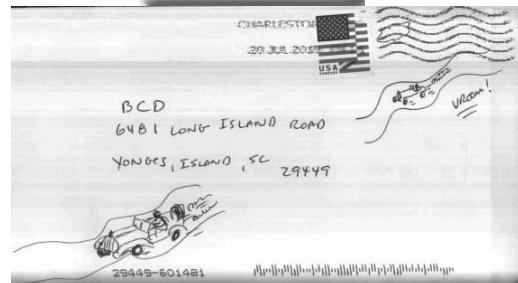 CHARLESTON
28 JUL 2015
USA
FOREVER
VROOM!
BCD
6481 LONG ISLAND ROAD
YONGES, ISLAND, SC
29449
29449-601481